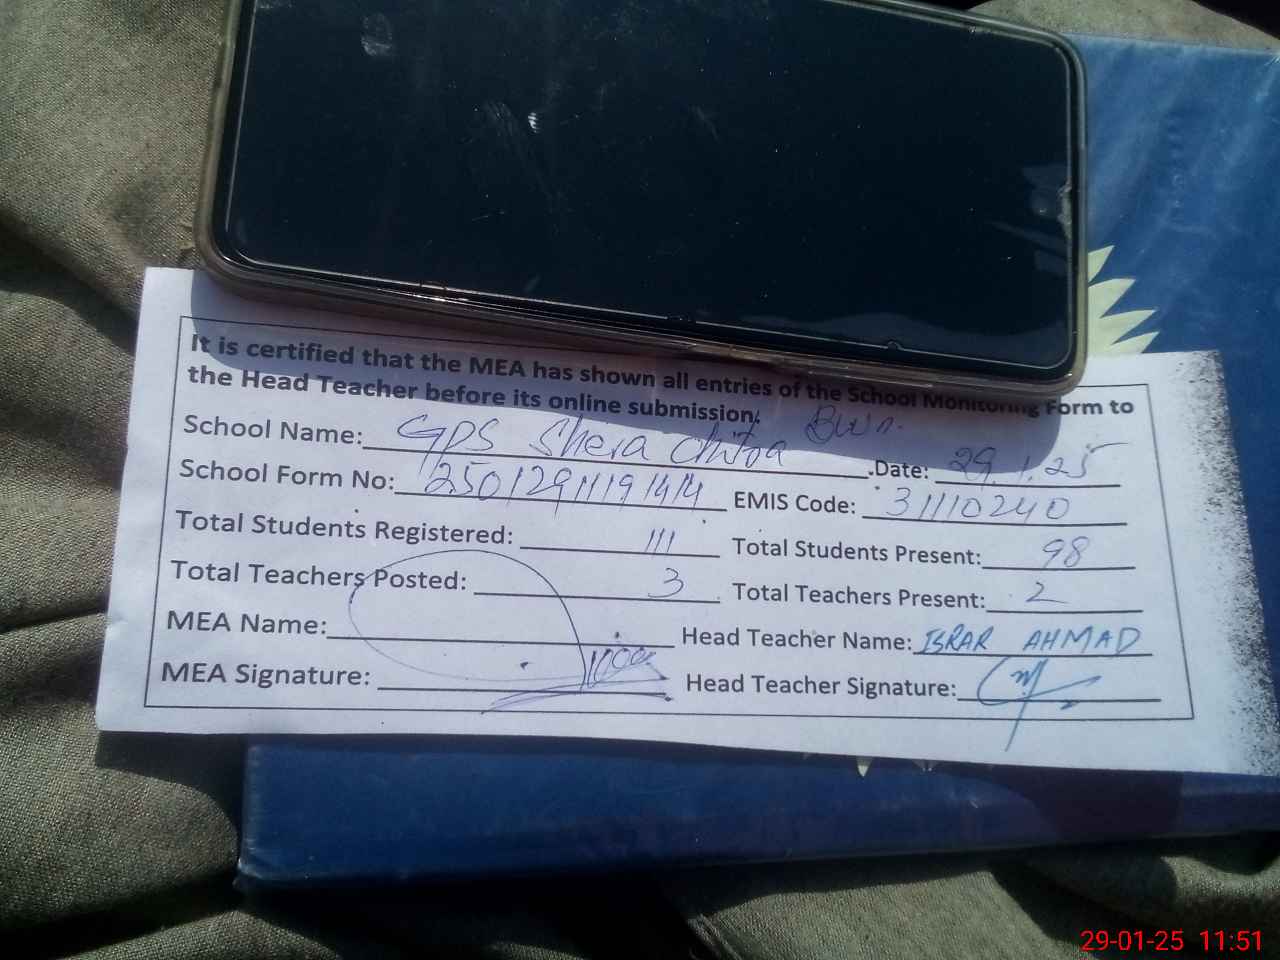 It is certified that the MEA has shown all entries of the School Monitoring Form to
the Head Teacher before its online submission.
School Name: GPS Shera Chitoa Bwn. Date: 29.1.25
School Form No: 25012911191414 EMIS Code: 31110240
Total Students Registered: 111 Total Students Present: 98
Total Teachers Posted: 3 Total Teachers Present: 2
MEA Name: Head Teacher Name: ISRAR AHMAD
MEA Signature: Head Teacher Signature:
29-01-25 11:51